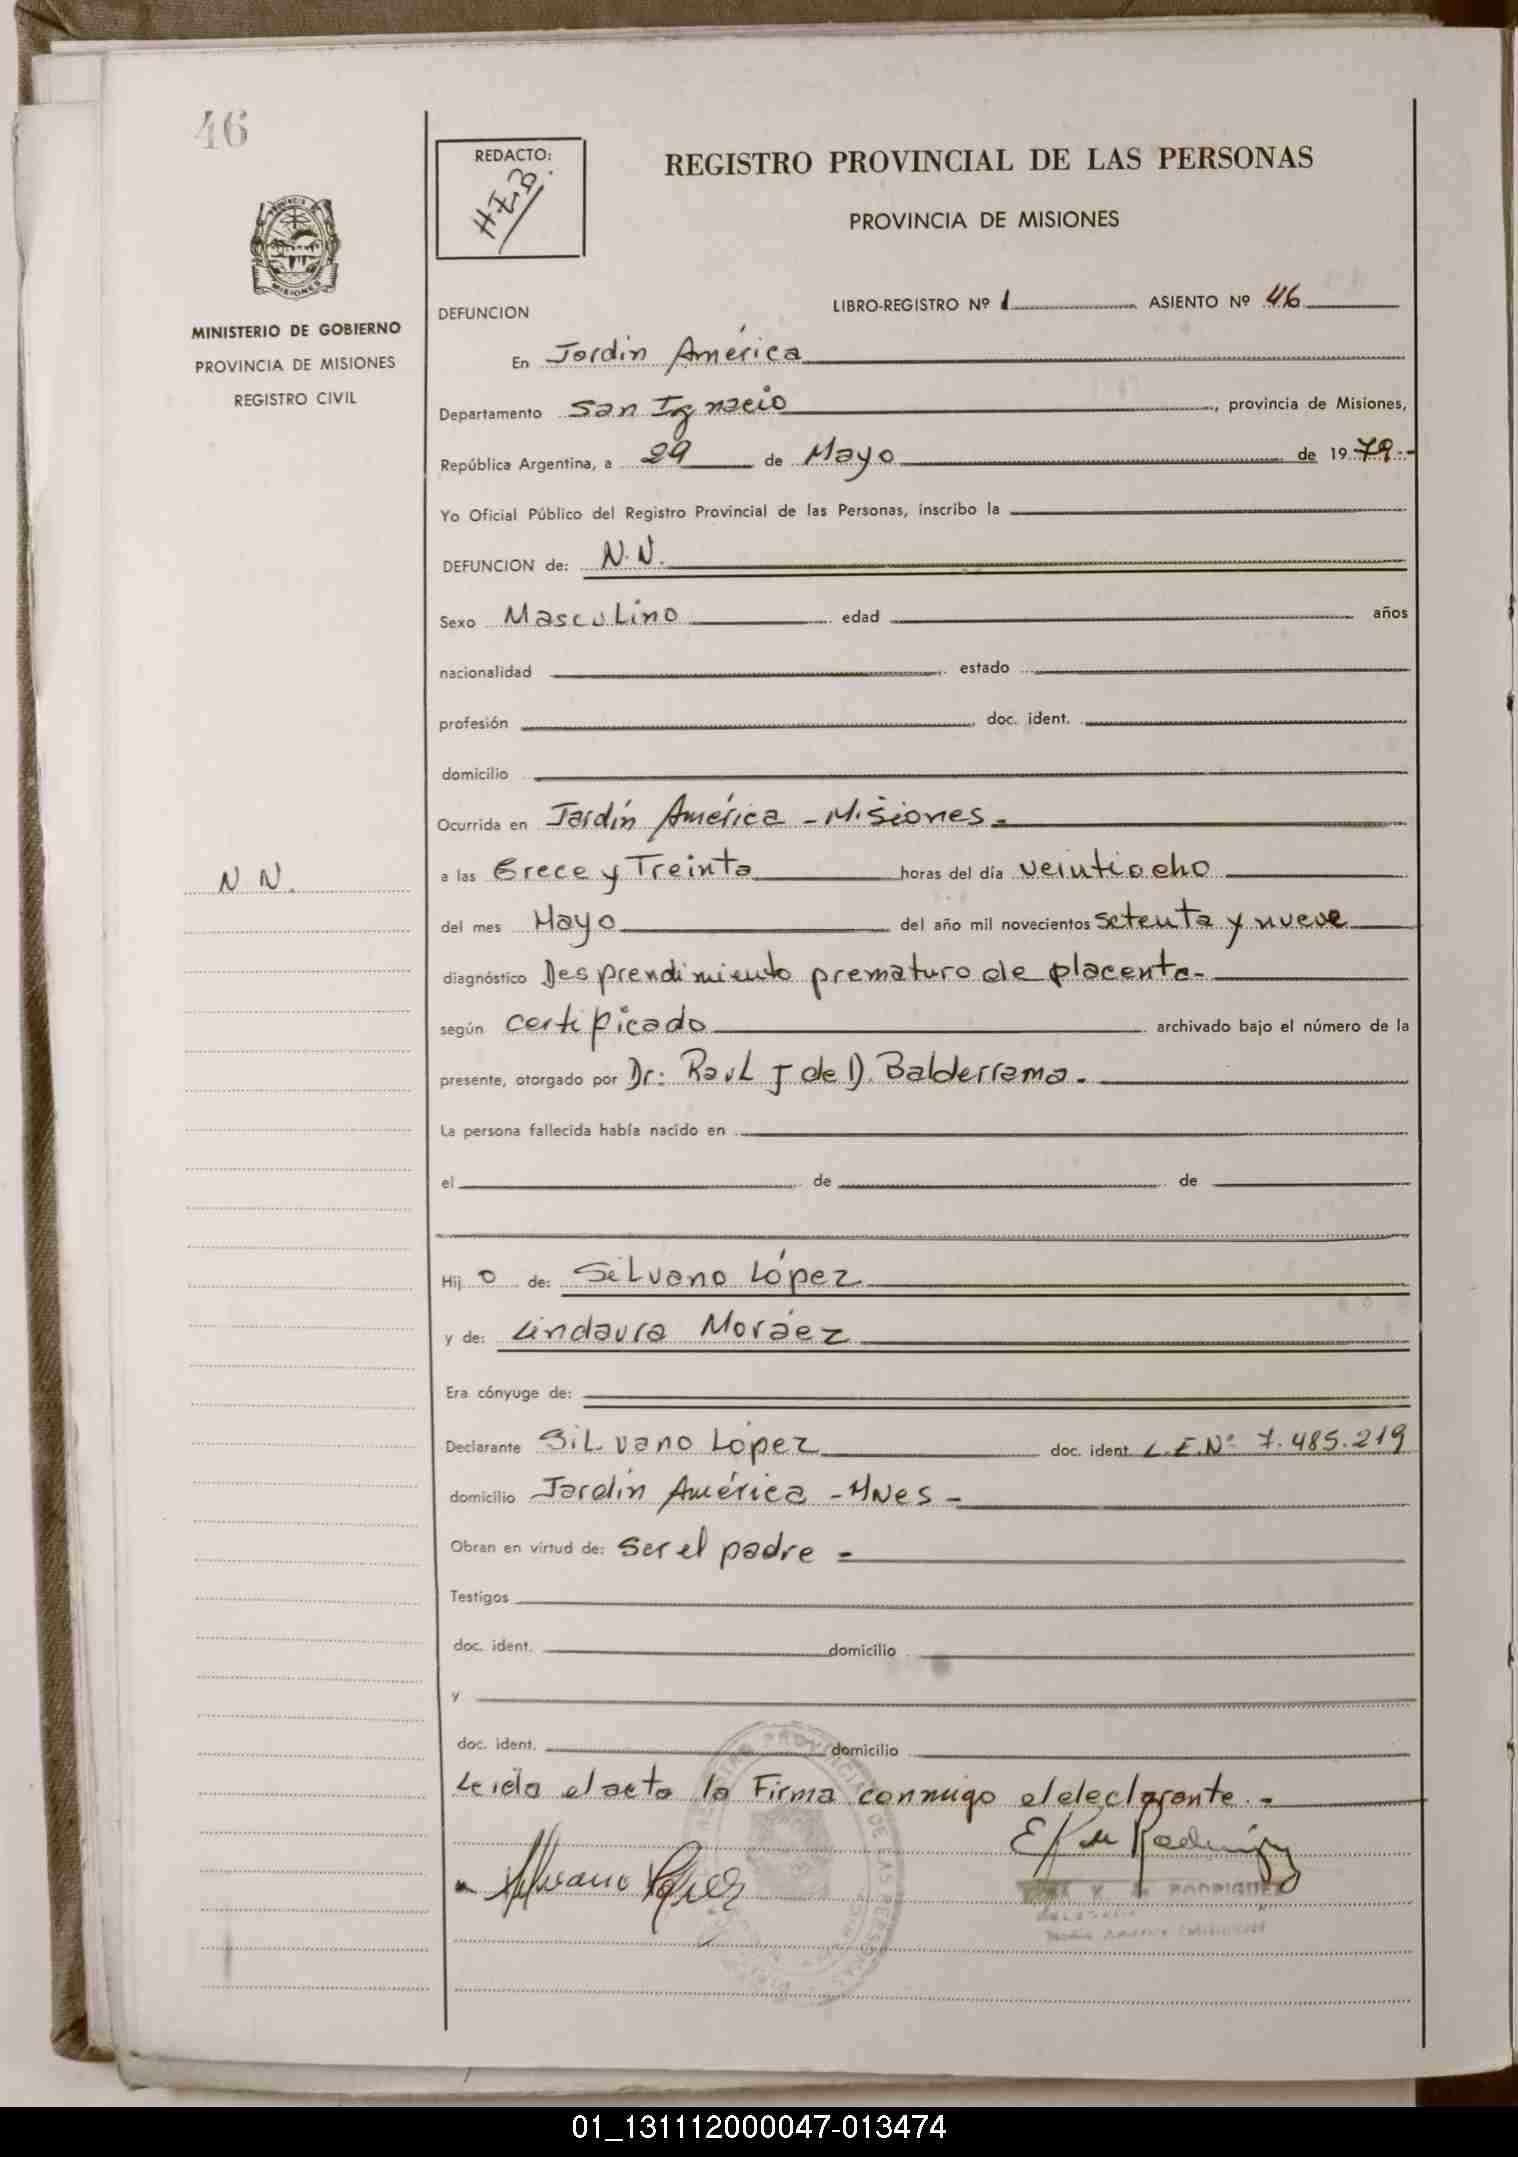 46
REDACTO:
REGISTRO PROVINCIAL DE LAS PERSONAS
PROVINCIA DE MISIONES
MINISTERIO DE GOBIERNO
PROVINCIA DE MISIONES
REGISTRO CIVIL
DEFUNCION LIBRO-REGISTRO Nº 1 ASIENTO Nº 46
En Jardín América
Departamento San Ignacio, provincia de Misiones,
República Argentina, a 29 de Mayo de 1979.-
Yo Oficial Público del Registro Provincial de las Personas, inscribo la
DEFUNCION de: N.N.
Sexo Masculino edad años
nacionalidad estado
profesión doc. ident.
domicilio
Ocurrida en Jardín América - Misiones.
N N. a las Grece y Treinta horas del día veintiocho
del mes Mayo del año mil novecientos setenta y nueve
diagnóstico Desprendimiento prematuro de placenta-
según certificado archivado bajo el número de la
presente, otorgado por Dr: Raul J de D. Balderrama.
La persona fallecida había nacido en
el de de
Hijo de: Silvano López
y de: Lindaura Moráez
Era cónyuge de:
Declarante Silvano López doc. ident. L.E.Nº 7.485.219
domicilio Jardín América - Mnes -
Obran en virtud de: Ser el padre -
Testigos
doc. ident. domicilio
y
doc. ident. domicilio
Leida el acta la Firma conmigo el declarante.-
Silvano López
RODRIGUEZ
01_131112000047-013474